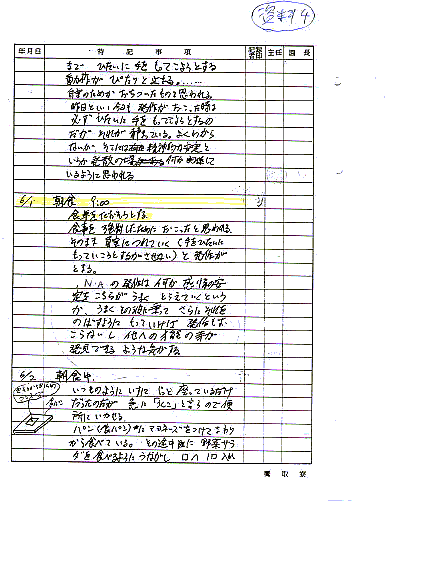 資料4
年月日 特記事項 記録者印 主任 園長
まで ひたいに 手を もってこようとする
動作が ぴたりと 止まる。……
自営のためか おちついたものと思われる
昨日といい今日も 発作が おこった時は
必ず ひたいに 手を もってこようとするの
だが それが 静まっている。よくわから
ないが、そこには 精神的な安定と
いうか 発散の
いるように思われる
6/1 朝食 9:00
食事をたべようとしない
食事を 強制したために おこったと思われる
そのまま 居室につれていく (手をひたいに
もっていこうとするがさせない) と 発作が
とまる。
N.Aの発作は 何か 感情の安
定を こちらが うまく とらえていくという
か、うまく その波に乗って さらに それを
のばすように もっていけば 発作もお
こらないし 他への才能の芽が
発見できる ような気がする
6/2 朝食中、
いつものように いすに じっと座っているだけ
だったのだが 急に「うんこ」と言うので 便
所に いかせる
パン(食パン)にマヨネーズをつけて
から食べている。その途中に 野菜サラ
ダを食べるように うながし 口へ 1口入れ
鷹取寮